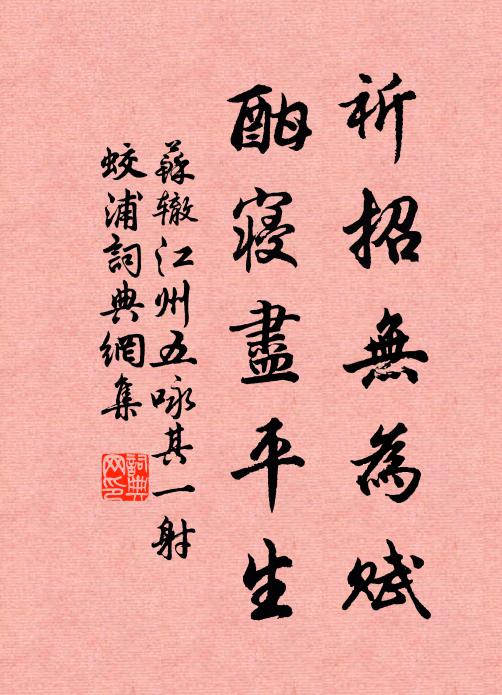 祈招無為赋
酣寝盡平生
蘇辙江州五咏其一射
蛟浦詞典網集
詞典
网印